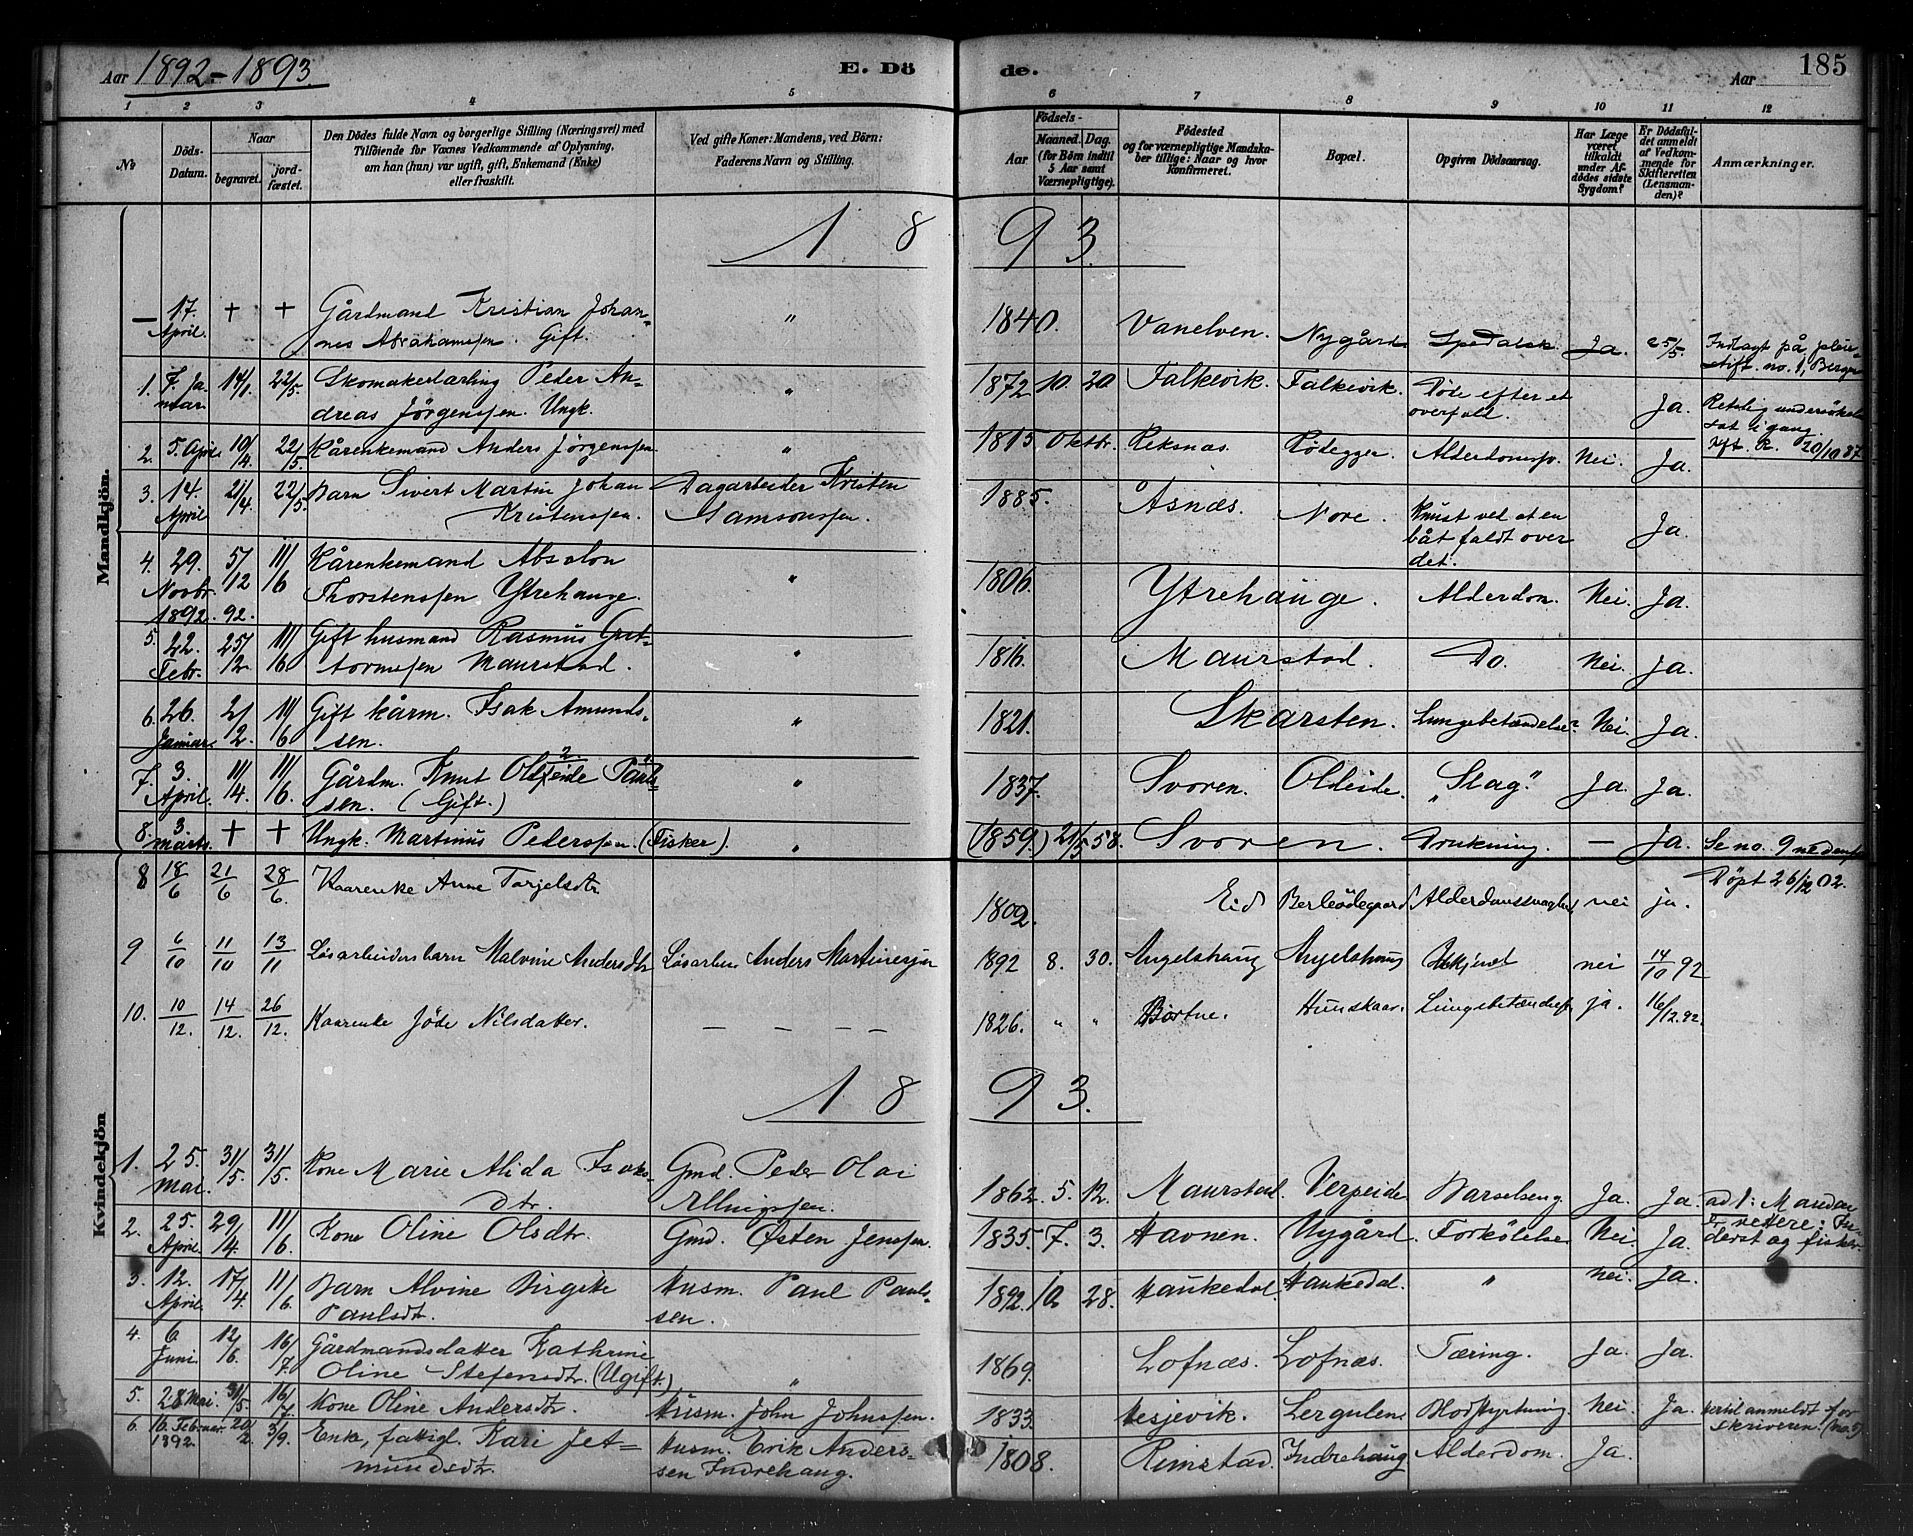 Aar 1892-1893. E. Dö de. Aar 185
1 2 3 4 5 6 7 8 9 10 11 12
No
Döds-Datum.
Naar
begravet.
jordfæstet.
Den Dödes fulde Navn og borgerlige Stilling (Næringsvei) med
Tilföiende for Voxnes Vedkommende af Oplysning,
om han (hun) var ugift, gift, Enkemand (Enke)
eller fraskilt.
Ved gifte Koner: Mandens, ved Börn:
Faderens Navn og Stilling.
Födsels-
Aar
Maaned. Dag.
(for Börn indtil
5 Aar samt
Værnepligtige).
Födested
og for værnepligtige Mandskaber tillige: Naar og hvor
konfirmeret.
Bopæl.
Opgiven Dödsaarsag.
Har Læge
været
tilkaldt
under Afdödes sidste
Sygdom?
Er Dödsfaldet anmeldt
af Vedkommende for
Skifteretten
(Lensmanden)?
Anmærkninger.
Mandkjön.
1 8 9 3.
— 17. April. + + Gårdmand Kristian Johannes Abrahamssen. Gift. " 1840. Vanelven. Nygård Spedalsk Ja. 25/5. Indlagt på pleiestift. no. 1, Bergen
1. 7. Januar 14/1. 22/5. Skomakerlærling Peder Andreas Jörgenssen. Ungk. " 1872 10. 20 Falkevik. Falkevik. Döde efter et overfald. Ja. Retslig undersökelse sat igang.
2. 5. April 10/4. 22/5. Kårenkemand Anders Jörgenssen " 1815. Oktbr. Reksnæs. Rödegger. Nei. Ja. 20/10 87
3. 14. April 21/4. 22/5. Barn Sivert Martin Johan Kristenssen. Dagarbeider Kristen Samsonssen. 1885. Åsnæs. Nore. Knust ved at en båt faldt over det. Ja.
4. 29. Novbr. 1892. 5/12 92. 11/6 Kårenkemand Absalon Thorstenssen Ytrehauge. " 1806. Ytrehauge. Alderdom. Nei. Ja.
5. 22. Febr. 25/2 11/6 Gift husmand Rasmus Guttormssen Maurstad. " 1816. Maurstad. Do. Nei. Ja.
6. 26. Januar 2/2. 11/6 Gift kårm. Isak Amundssen. " 1821. Skarsten. Lungebetændelse? Nei. Ja.
7. 3. April. 11/4. 11/6. Gårdm. Knut Oldeide Paulssen. (Gift.) " 1837. Svoren. Oldeide. "Slag." Ja. Ja.
8. 3. Marts. + + Ungk. Martinus Pederssen. (Fisker). " (1859.) 21/5 58. Svoren. Drukning. — Ja. Se no. 9 nedenfor
Döpt 26/12 02.
8 18/6 21/6 28/6. Kaarenke Anne Torjelsdtr 1809. Eid Berleödegaard Alderdomssvaghed nei ja.
9 6/10 11/10 13/11 Lösarbeidersbarn Malvine Andersdtr Lösarbeider Anders Martinessen 1892 8. 30. Angelshaug Angelshaug Ukjendt nei 14/10 92
10. 10/12. 14/12. 26/12. Kaarenke Jöde Nilsdatter. — — — — 1826. " " Bortne. Hunskaar. Lungebetændelse ja. 16/12.92.
1 8 9 3.
Kvindekjön
1. 25. Mai. 31/5. 31/5. Kone Marie Alida Isaksdtr. Gmd. Peder Olai Ellingssen. 1862. 5. 12. Maurstad. Verpeide Barselseng. Ja. Ja. ad 1: Manden er rettere: Inderst og fisker
2. 25. April 29/4. 11/6. Kone Oline Olsdtr. Gmd. Østen Jenssen. 1835. 7. 3. Havnen. Nygård. Forkölelse Nei Ja.
3. 12. April 17/4. 11/6. Barn Alvine Birgite Paulsdtr. Husm. Paul Paulssen. 1892. 10 28. Haukedal. Haukedal. " Nei. Ja.
4. 6 Juni 12/6. 16/7. Gårdmandsdatter Kathrine Oline Stefensdtr. (Ugift.) " 1869. Lofnæs. Lofnæs. Tæring. Ja. Ja.
5. 28 Mai. 31/5. 16/7. Kone Oline Andersdtr. Husm. John Johnssen. 1833. Hesjevik. Lergulen Blodstyrtning Nei. Ja. anmeldt for skriveren! (no. 5)
6. 16. Februar. 1892. 20/2 3/9. Enke, fattigl. Kari Jetmundsdtr. Husm. Erik Anderssen Indrehaug. 1808. Rimstad. Indrehaug Alderdom. Ja.